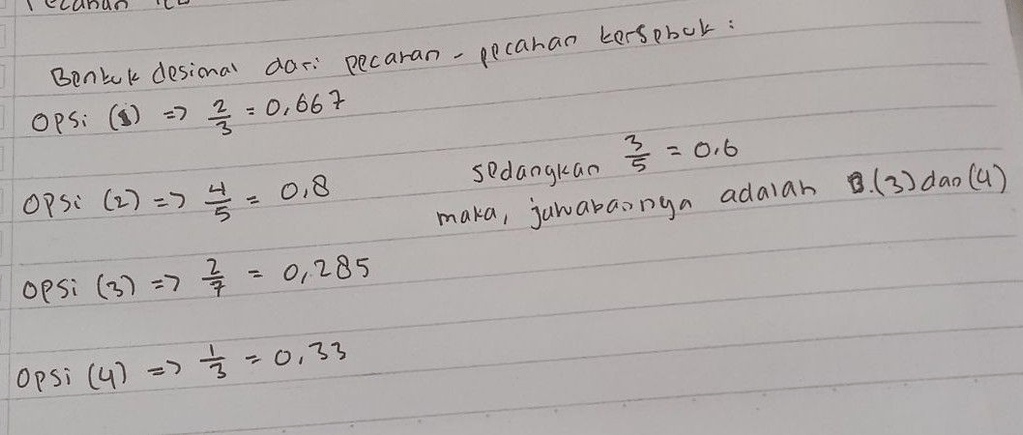 Bentuk desimal dari pecahan - pecahan tersebut :
Opsi (1) => 2/3 = 0,667
Opsi (2) => 4/5 = 0,8
sedangkan 3/5 = 0.6
maka, jawabannya adalah B.(3) dan (4)
Opsi (3) => 2/7 = 0,285
Opsi (4) => 1/3 = 0,33